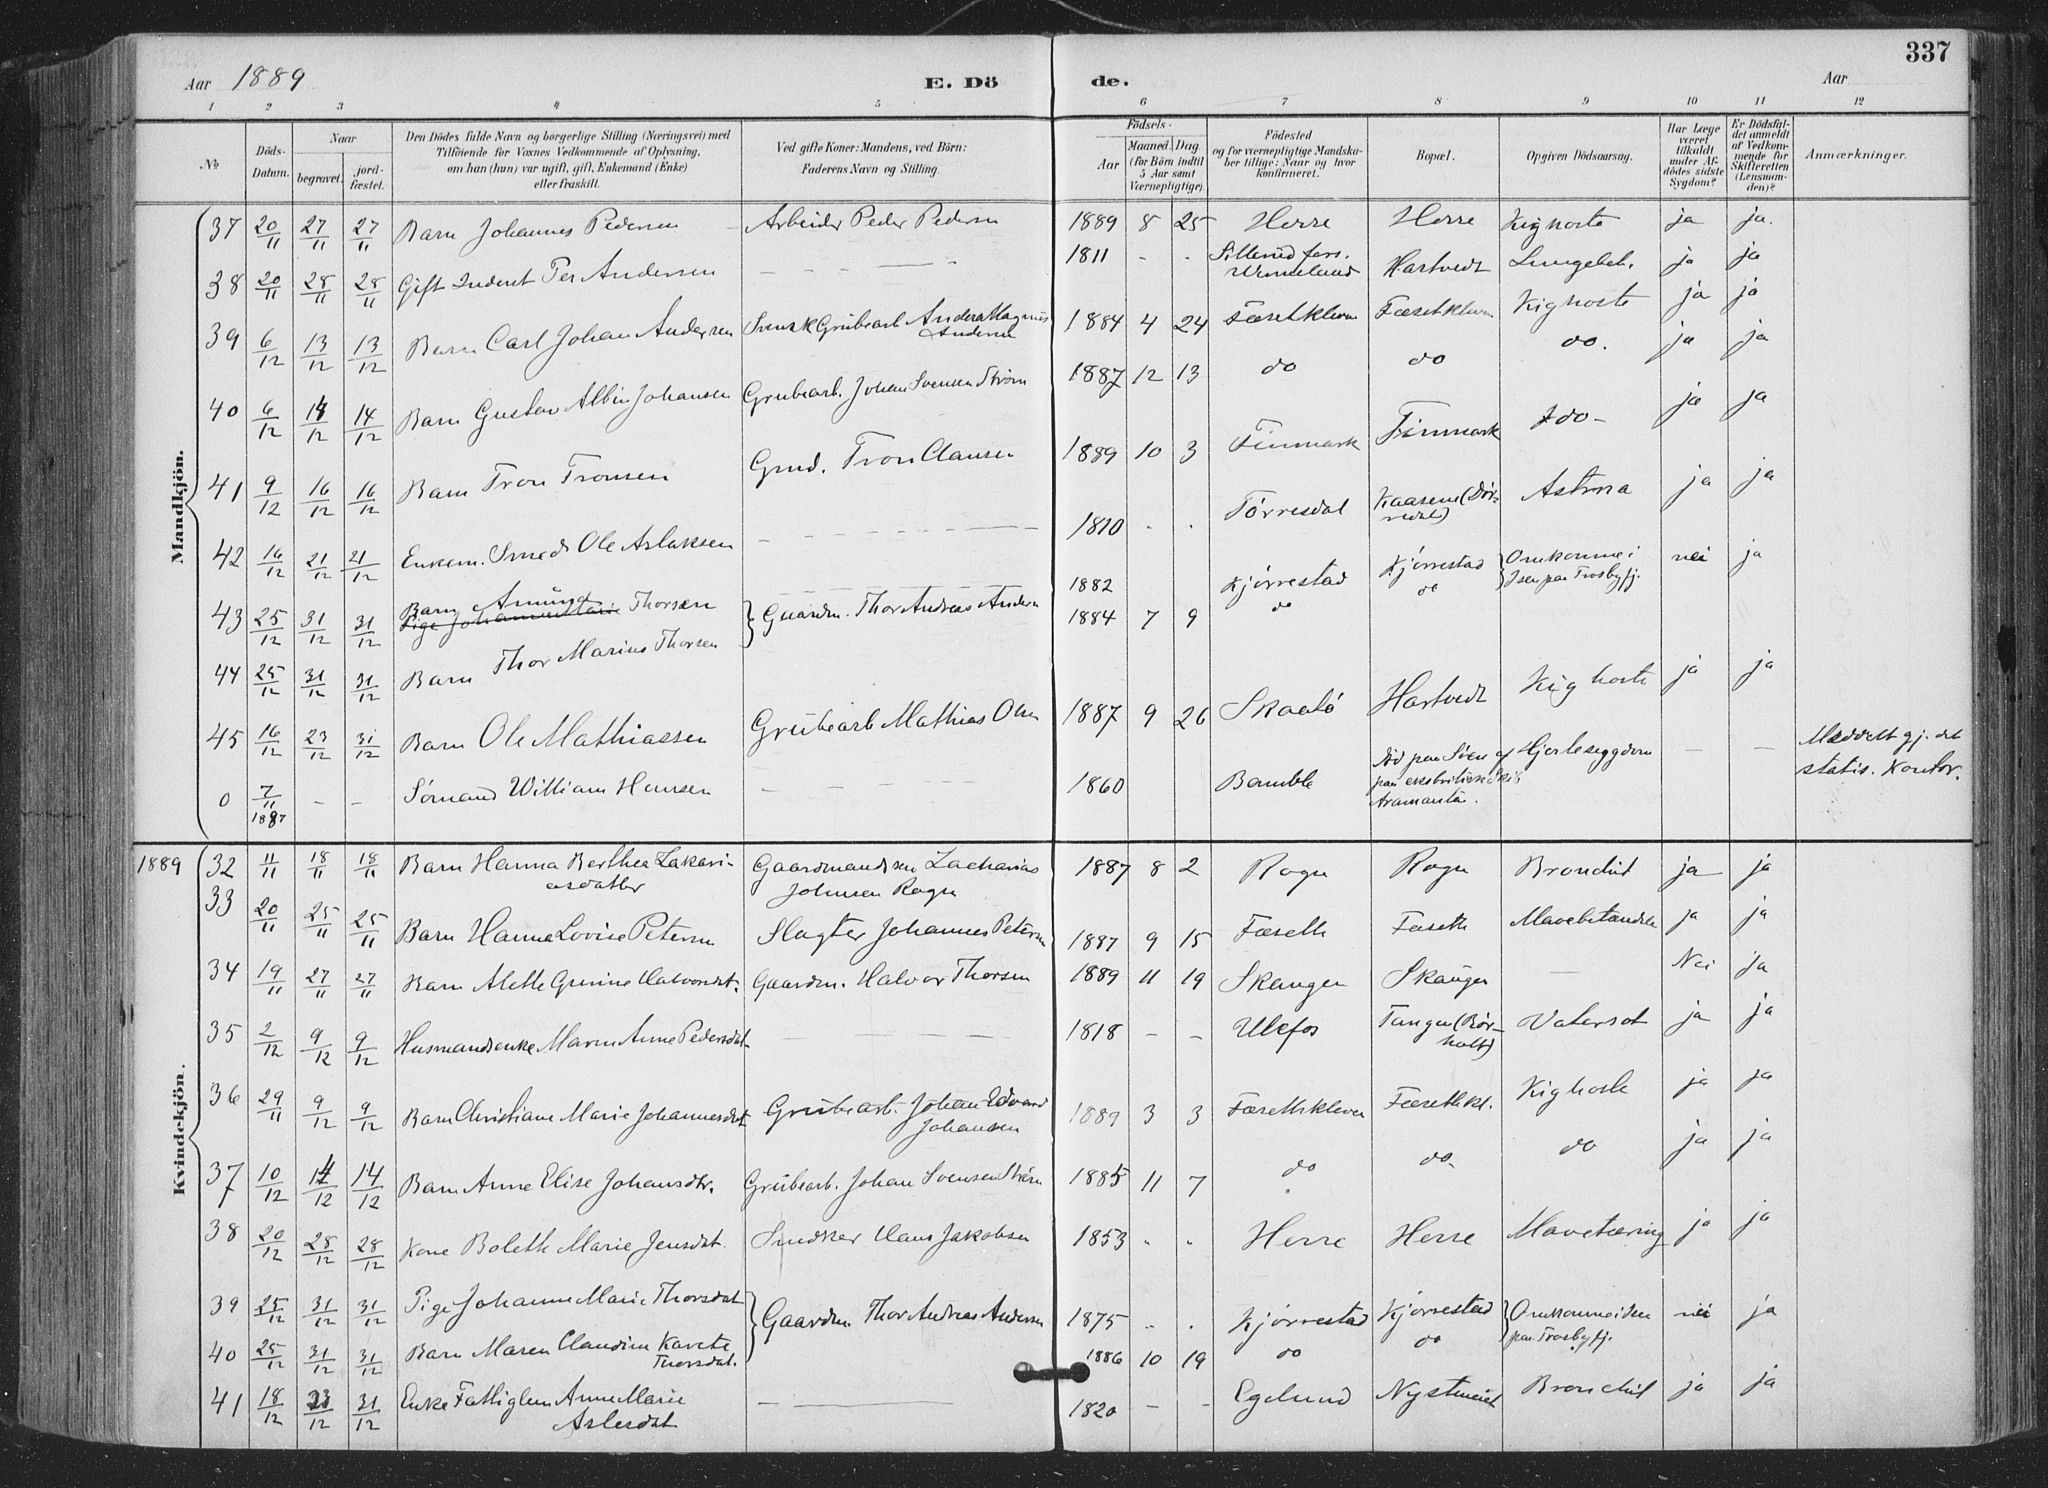 337
Aar 1889 E. Dö de. Aar
1 2 3 4 5 6 7 8 9 10 11 12
No
Döds-Datum.
Naar
begravet.
jord-fæstet.
Den Dödes fulde Navn og borgerlige Stilling (Næringsvei) med
Tilföiende for Voxnes Vedkommende af Oplysning,
om han (hun) var ugift, gift, Enkemand (Enke)
eller fraskilt.
Ved gifte Koner: Mandens, ved Börn:
Faderens Navn og Stilling.
Födsels-
Aar
Maaned. Dag.
(for Börn indtil
5 Aar samt
Værnepligtige)
Födested
og for værnepligtige Mandska-
ber tillige: Naar og hvor
konfirmeret.
Bopæl.
Opgiven Dödsaarsag.
Har Læge
været
tilkaldt
under Af-
dödes sidste
Sygdom?
Er Dödsfal-
det anmeldt
af Vedkom-
mende for
Skifteretten
(Lensman-
den)?
Anmærkninger.
Mandkjön.
37 20/11 27/11 27/11 Barn Johannes Pedersen Arbeider Peder Pedersen 1889 8 25 Herre Herre Kighoste ja ja.
38 20/11 28/11 28/11 Gift Inderst Per Andersen 1811 - - Sillerud fors. Vermeland Hartvedt Lungebet. ja ja
39 6/12 13/12 13/12 Barn Carl Johan Andersen Svensk Grubearb Anders Magnus Andersen 1884 4 24 Fæsetkleven Fæsetkleven Kighoste ja ja
40 6/12 14/12 14/12 Barn Gustav Albin Johansen Grubearb. Johan Svensen Strøm 1887 12 13 do do do. ja ja
41 9/12 16/12 16/12 Barn Tron Tronsen Grud. Tron Clausen 1889 10 3 Finmark Finmark do - ja ja
42 16/12 21/12 21/12 Enkem. Smed Ole Aslaksen 1810 - - Tørresdal Kaasene (Dør-redal) Astma ja ja
43 25/12 31/12 31/12 Barn Amund Thorsen } Gaardm. Thor Andreas Andersen 1882 Kjørrestad Kjørrestad } Omkommet i Isen paa Trosbyfj. nei ja
44 25/12 31/12 31/12 Barn Thor Marius Thorsen 1884 7 9 do do
45 16/12 23/12 31/12 Barn Ole Mathiassen Grubearb Mathias Olsen 1887 9 26 Skaatø Hartvedt Kighoste ja ja
0 7/11 1887 - - Sømand William Hansen 1860 Bamble Død paa Søen af Hjertesygdom paa Aramanta. - - Meddelt gj. det statis. Kontor.
Kvindekjön.
1889 32 11/11 18/11 18/11 Barn Hanna Berthea Zakari-asdatter Gaardmandssøn Zacharias Johnsen Rogn 1887 8 2 Rogn Rogn Bronchit ja ja
33 20/11 25/11 25/11 Barn Hanna Lovise Petersen Slagter Johannes Petersen 1887 9 15 Fæseth Fæseth Mavebetændelse ja ja
34 19/11 27/11 27/11 Barn Alette Gurine Halvorsdt. Gaardm. Halvor Thorsen 1889 11 19 Skaugen Skaugen - Nei ja
35 2/12 9/12 9/12 Husmandsenke Maren Anne Pedersdat. 1818 - - Ulefos Tangen (Bør-holt) Vatersot ja ja
36 29/11 9/12 9/12 Barn Christiane Marie Johannesdat. Grubearb. Johan Edvard Johansen 1889 3 3 Fæsethskleven Fæsethkl. Kighoste ja ja
37 10/12 14/12 14/12 Barn Anne Elise Johansdtr. Grubearb. Johan Svensen Strøm 1885 11 7 do do. do ja ja
38 20/12 28/12 28/12 Kone Bolethe Marie Jensdat. Snedker Hans Jakobsen 1853 - - Herre Herre Mavetæring ja ja
39 25/12 31/12 31/12 Pige Johanne Marie Thorsdat. } Gaardm. Thor Andreas Andersen 1875 - - Kjørrestad Kjørrestad } Omkommet i Isen paa Trosbyfj. nei ja
40 25/12 31/12 31/12 Barn Maren Claudine Kavete Thorsdat. 1886 10 19 do do
41 18/12 23/12 31/12 Enke Fattiglem Anne Marie Aslesdat 1820 - - Egelund Nystrøiet Bronchit ja ja